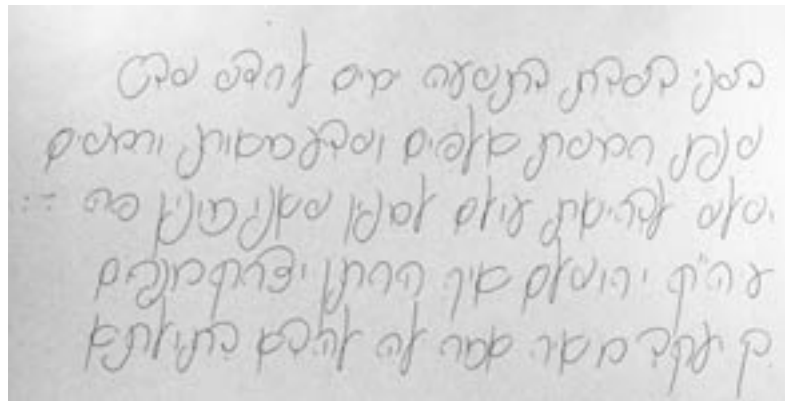 בשני בשבת בתשעה ימים לחדש שבט
שנת חמשת אלפים ושבע מאות וחמשים
ושלש לבריאת עולם למנין שאנו מונין פה
עיה"ק ירושלם איך החתן יצחק מנחם
בן יעקב מאיר אמר לה להדא בתולתא